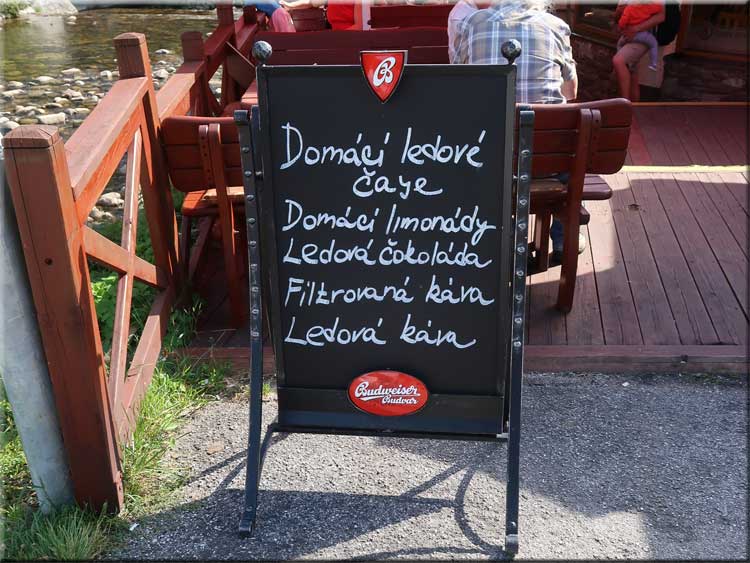 B
Domácí ledové
čaje
Domácí limonády
Ledová čokoláda
Filtrovaná káva
Ledová káva
Budweiser
Budvar